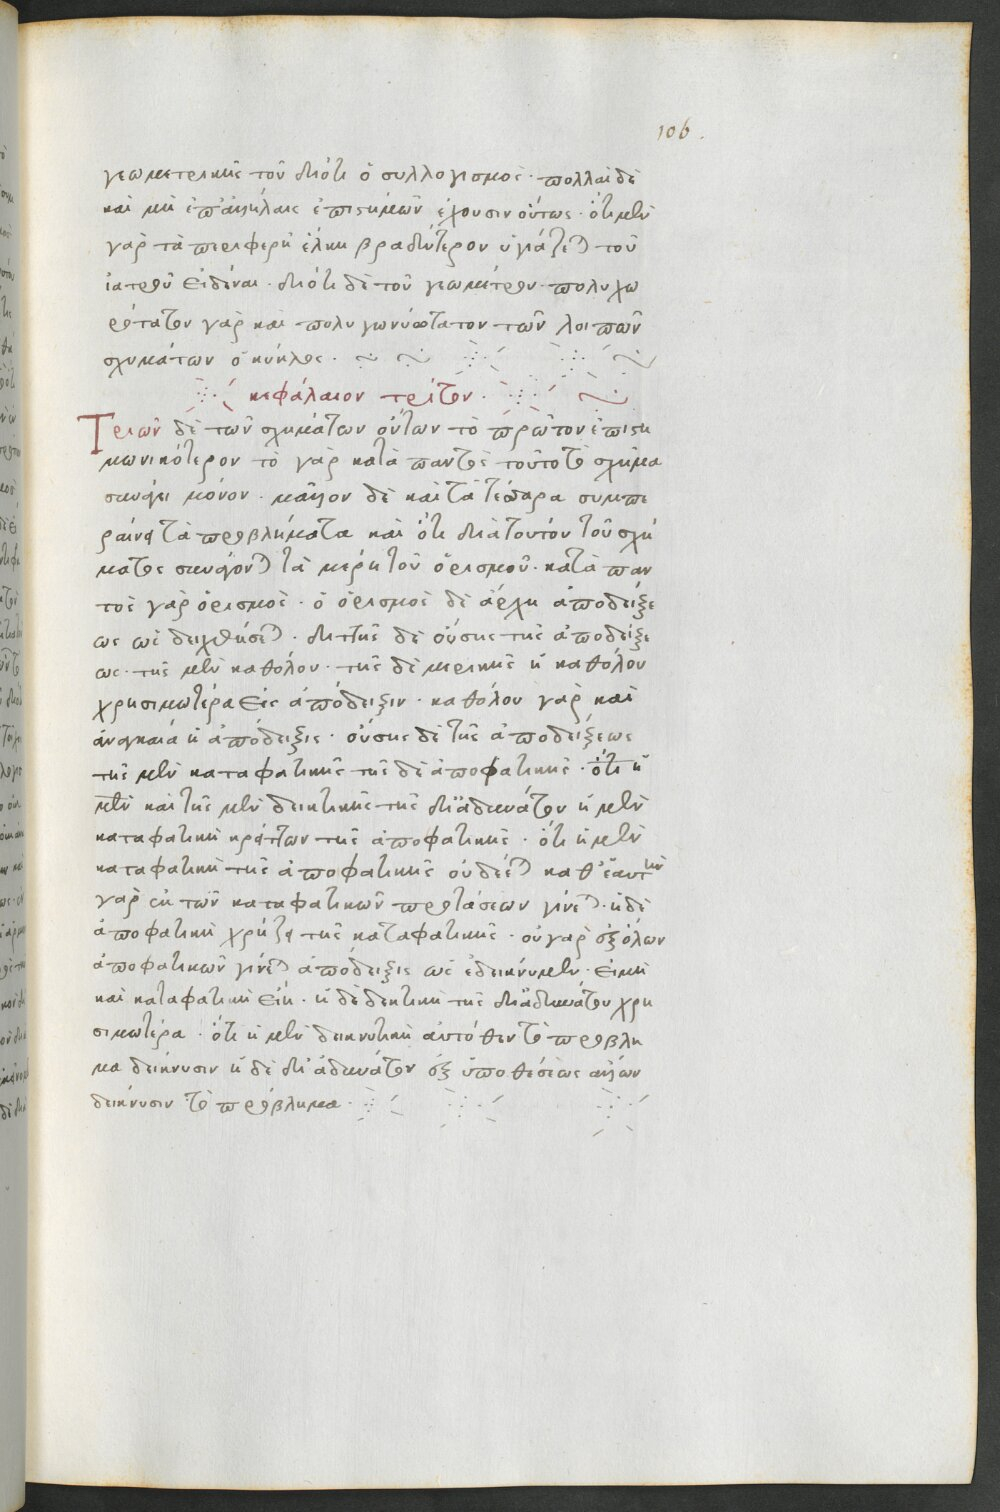 106.
γεωμετρικῆς τοῦ διότι ὁ συλλογισμός· πολλαὶ δὲ
καὶ μὴ ἐπ' ἀλλήλαις ἐπιστημῶν ἔχουσιν οὕτως· ὅτι μὲν
γὰρ τὰ περιφερῆ ἕλκη βραδύτερον ὑγιάζεται τοῦ
ἰατροῦ εἰδέναι· διότι δὲ τοῦ γεωμέτρου· πολυχω
ρότατον γὰρ καὶ πολυγωνώτατον τῶν λοιπῶν
σχημάτων ὁ κύκλος·
κεφάλαιον τρίτον·
Τριῶν δὲ τῶν σχημάτων ὄντων τὸ πρῶτον ἐπιστη
μωνικότερον τὸ γὰρ κατὰ παντὸς τοῦτο τὸ σχῆμα
συνάγει μόνον· μᾶλλον δὲ καὶ τὰ τέσσαρα συμπε
ραίνει τὰ προβλήματα καὶ ὅτι διὰ τούτου τοῦ σχή
ματος συνάγονται τὰ μέρη τοῦ ὁρισμοῦ· κατὰ παν
τὸς γὰρ ὁρισμός· ὁ ὁρισμὸς δὲ ἀρχὴ ἀποδείξε
ως ὡς δειχθήσεται· διττῆς δὲ οὔσης τῆς ἀποδείξε
ως· τῆς μὲν καθόλου· τῆς δὲ μερικῆς ἡ καθόλου
χρησιμωτέρα εἰς ἀπόδειξιν· καθόλου γὰρ καὶ
ἀναγκαία ἡ ἀπόδειξις· οὔσης δὲ τῆς ἀποδείξεως
τῆς μὲν καταφατικῆς τῆς δὲ ἀποφατικῆς· ὅτι ἡ
μὲν καὶ τῆς μὲν δεικτικῆς τῆς διἀδυνάτου ἡ μὲν
καταφατικὴ κρείττων τῆς ἀποφατικῆς· ὅτι ἡ μὲν
καταφατικὴ τῆς ἀποφατικῆς οὐ δέεται καθ' ἑαυτὴν
γὰρ ἐκ τῶν καταφατικῶν προτάσεων γίνεται· ἡ δὲ
ἀποφατικὴ χρήζει τῆς καταφατικῆς· οὐ γὰρ ἐξ ὅλων
ἀποφατικῶν γίνεται ἀπόδειξις ὡς ἐδείκνυμεν· εἰ μὴ
καὶ καταφατικὴ εἴη· ἡ δὲ δεικτικὴ τῆς διἀδυνάτου χρη
σιμωτέρα· ὅτι ἡ μὲν δεικνυτικὴ αὐτόθεν τὸ πρόβλη
μα δείκνυσιν ἡ δὲ δι' ἀδυνάτου ἐξ ὑποθέσεως ἄλλων
δείκνυσιν τὸ πρόβλημα·